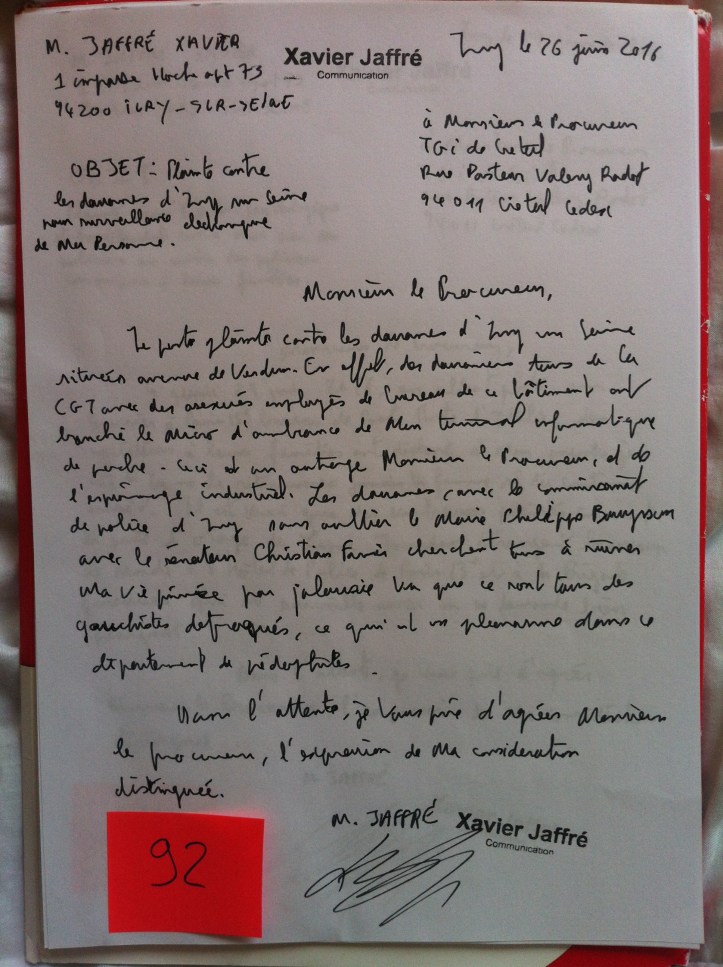 M. JAFFRÉ XAVIER
Xavier Jaffré
Communication
Ivry le 26 juin 2016
1 impasse Hoche apt 73
94200 IVRY-SUR-SEINE
à Monsieur le Procureur
TGI de Créteil
Rue Pasteur Valery Radot
94011 Créteil Cedex
OBJET: Plainte contre
les douanes d'Ivry sur Seine
pour surveillance électronique
de Ma Personne.
Monsieur le Procureur,
Je porte plainte contre les douanes d'Ivry sur Seine
situées avenue de Verdun. En effet, des douaniers tous de la
CGT avec des asexués employés de bureau de ce bâtiment ont
branché le micro d'ambiance de Mon terminal informatique
de poche. Ceci est un outrage Monsieur le Procureur, et de
l'espionnage industriel. Les douanes avec le commissariat
de police d'Ivry sans oublier le Maire Philippe Bouyssou
avec le sénateur Christian Favier cherchent tous à ruiner
Ma vie privée par jalousie vu que ce sont tous des
gauchistes défroqués, ce qui est un pléonasme dans ce
département de pédophiles.
Dans l'attente, je Vous prie d'agréer Monsieur
le procureur, l'expression de Ma considération
distinguée.
M. JAFFRÉ
Xavier Jaffré
Communication
92